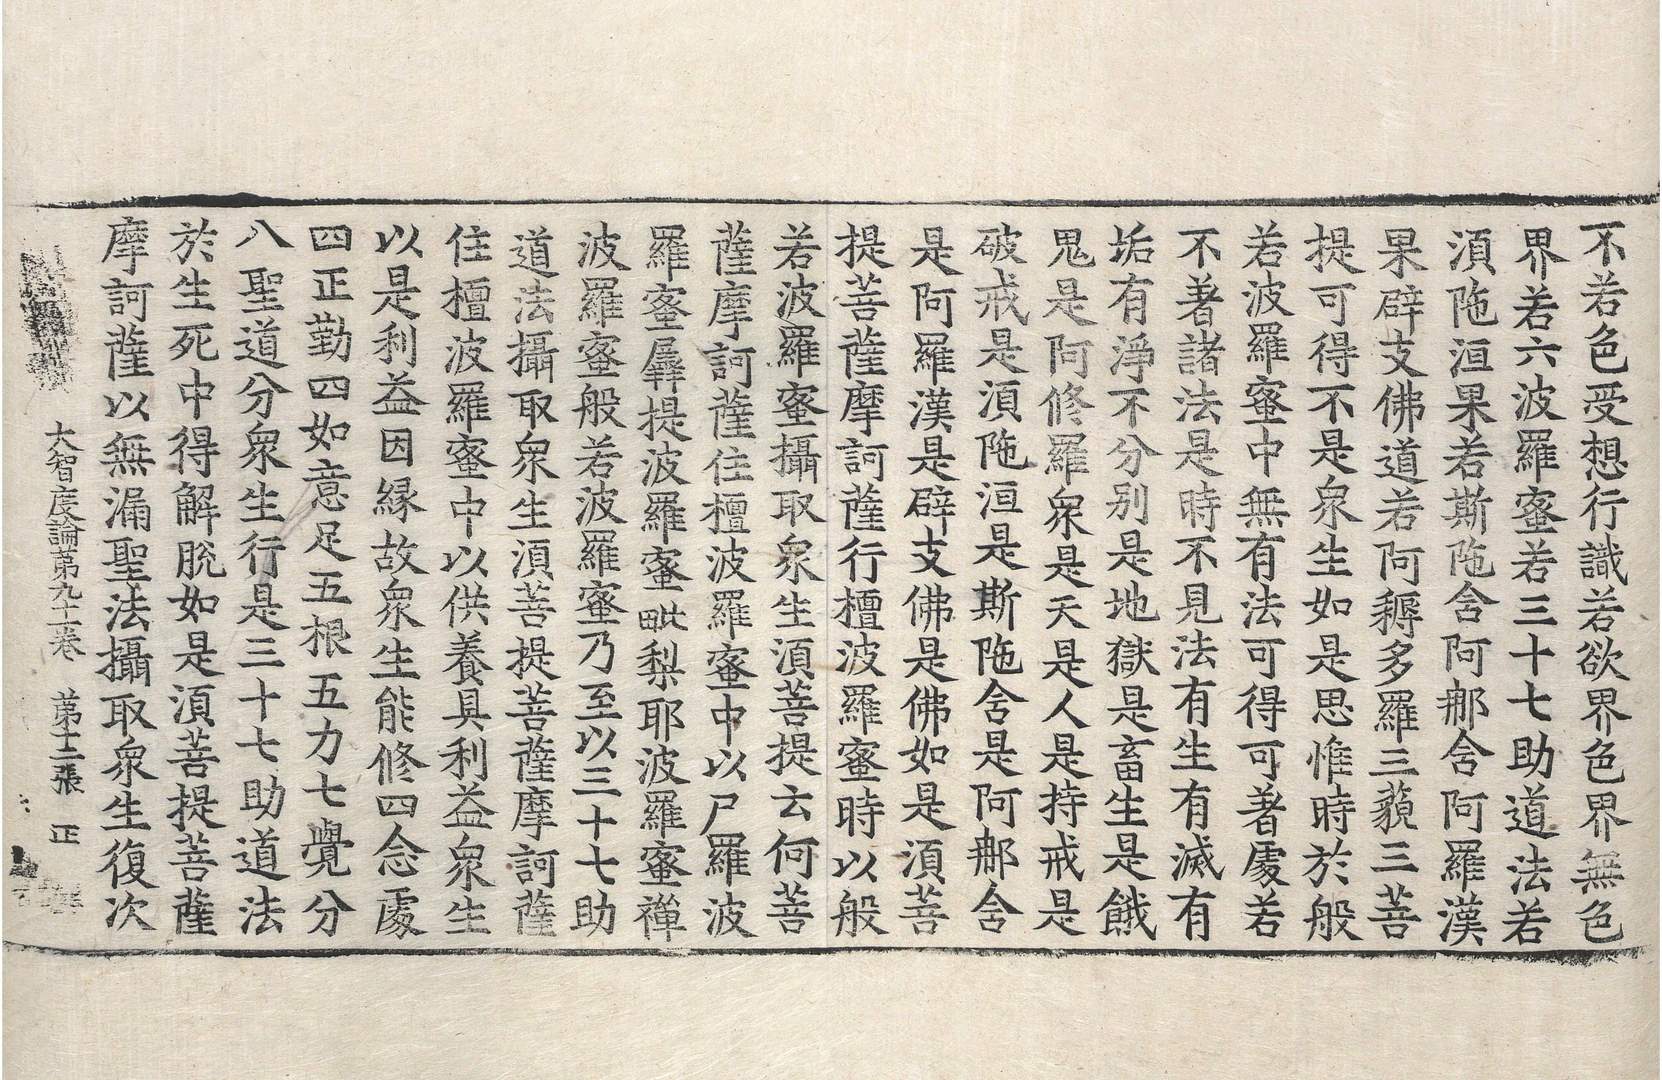 不若色受想行識若欲界色界無色
界若六波羅蜜若三十七助道法若
湏陁洹果若斯陁含阿那含阿羅漢
果辟支佛道若阿耨多羅三藐三菩
提可得不是衆生如是思惟時於般
若波羅蜜中無有法可得可著處若
不著諸法是時不見法有生有滅有
垢有淨不分別是地獄是畜生是餓
鬼是阿修羅衆是天是人是持戒是
破戒是湏陁洹是斯陁含是阿那含
是阿羅漢是辟支佛是佛如是湏菩
提菩薩摩訶薩行檀波羅蜜時以般
若波羅蜜攝取衆生湏菩提云何菩
薩摩訶薩住檀波羅蜜中以尸羅波
羅蜜羼提波羅蜜毗梨耶波羅蜜禪
波羅蜜般若波羅蜜乃至以三十七助
道法攝取衆生湏菩提菩薩摩訶薩
住檀波羅蜜中以供養具利益衆生
以是利益因緣故衆生能修四念處
四正勤四如意足五根五力七覺分
八聖道分衆生行是三十七助道法
於生死中得解脫如是湏菩提菩薩
摩訶薩以無漏聖法攝取衆生復次
大智度論第九十卷 第十二張 正